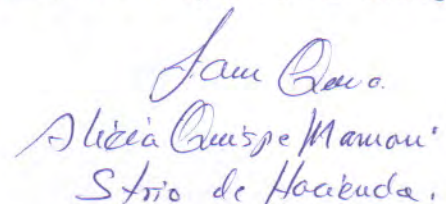 Alicia Quispe Mamani
Strio de Hacienda.